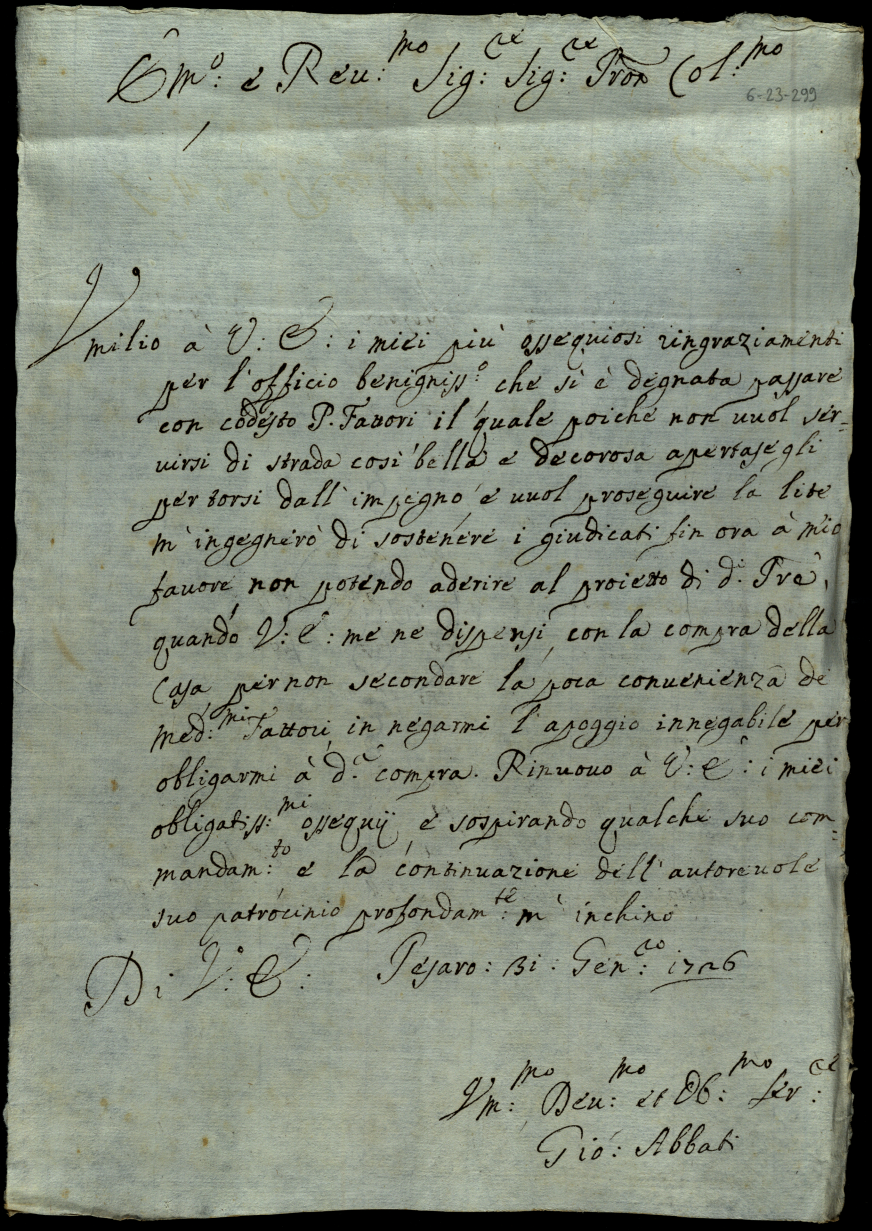 Em:o e Reu:mo Sig:re Sig:re Pron Col:mo
6-23-299
Vmilio à V: E: i miei più ossequiosi ringraziamenti
per l'officio benigniss:o che si è degnata passare
con codesto P. Fattori il quale poiche non uuol ser-
uirsi di strada così bella e decorosa apertasegli
per torsi dall'impegno e uuol proseguire la lite
m'ingegnerò di sostenere i giudicati fin ora à mio
fauore non potendo aderire al proietto di d:i Tre,
quando V: E: me ne dispensi, con la compra della
Casa per non secondare la poca conuenienza de
med:mi Fattori in negarmi l'apoggio innegabile per
obligarmi à d:a compra. Rinuouo à V: E: i miei
obligatiss:mi ossequij e sospirando qualche suo com-
mandam:to e la continuazione dell'autoreuole
suo patrocinio profondam:te m'inchino
Di V: E: Pesaro: 31: Gen:ro 1726
Vm:mo Deu:mo et Ob:mo Ser:re
Gio: Abbati